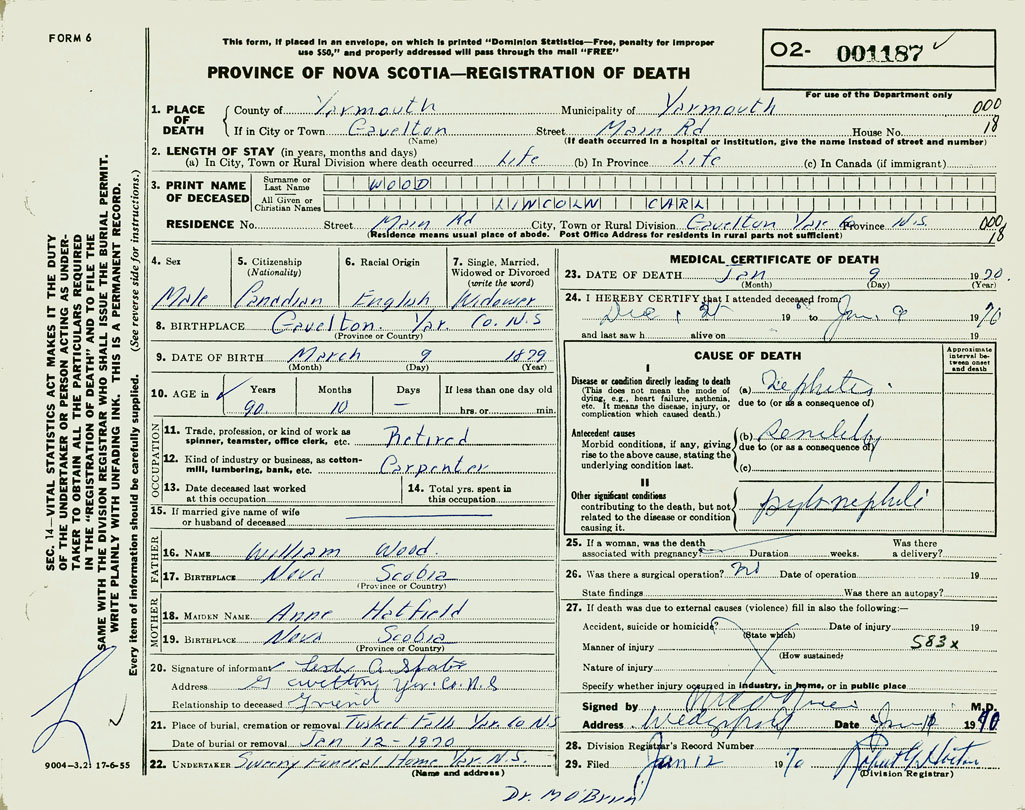 FORM 6
This form, if placed in an envelope, on which is printed "Dominion Statistics—Free, penalty for improper
use $50," and properly addressed will pass through the mail "FREE"
PROVINCE OF NOVA SCOTIA—REGISTRATION OF DEATH
O2- 001187 ✓
For use of the Department only
1. PLACE OF DEATH { County of Yarmouth Municipality of Yarmouth 000
If in City or Town Gavelton Street Main Rd House No. 18
(Name) (If death occurred in a hospital or institution, give the name instead of street and number)
2. LENGTH OF STAY (in years, months and days)
(a) In City, Town or Rural Division where death occurred Life (b) In Province Life (c) In Canada (if immigrant)
3. PRINT NAME OF DECEASED Surname or Last Name WOOD
All Given or Christian Names LINCOLN CARL
RESIDENCE No. Street Main Rd City, Town or Rural Division Gavelton Yar Co Province N.S 000
(Residence means usual place of abode. Post Office Address for residents in rural parts not sufficient) 18
4. Sex 5. Citizenship (Nationality) 6. Racial Origin 7. Single, Married, Widowed or Divorced (write the word)
Male Canadian English Widower
8. BIRTHPLACE Gavelton. Yar. Co. N.S
(Province or Country)
9. DATE OF BIRTH March 9 1879
(Month) (Day) (Year)
10. AGE in ✓ Years Months Days If less than one day old
90 10 — hrs. or min.
OCCUPATION
11. Trade, profession, or kind of work as spinner, teamster, office clerk, etc. Retired
12. Kind of industry or business, as cotton-mill, lumbering, bank, etc. Carpenter
13. Date deceased last worked at this occupation 14. Total yrs. spent in this occupation
15. If married give name of wife or husband of deceased
FATHER
16. NAME William Wood.
17. BIRTHPLACE Nova Scotia
(Province or Country)
MOTHER
18. MAIDEN NAME. Anne Hatfield
19. BIRTHPLACE Nova Scotia
(Province or Country)
20. Signature of informant Leslie A.
Address Gavelton Yar. Co. N.S
Relationship to deceased Friend
21. Place of burial, cremation or removal Tusket Falls Yar. Co N.S
Date of burial or removal Jan 12-1970
22. UNDERTAKER Sweeny Funeral Home Yar. N.S.
(Name and address)
MEDICAL CERTIFICATE OF DEATH
23. DATE OF DEATH Jan 9 1970.
(Month) (Day) (Year)
24. I HEREBY CERTIFY that I attended deceased from
Dec 19 to Jan. 9 1970
and last saw h alive on 19
CAUSE OF DEATH
Approximate interval between onset and death
I
Disease or condition directly leading to death
(This does not mean the mode of dying, e.g., heart failure, asthenia, etc. It means the disease, injury, or complication which caused death.)
(a) Nephritis
due to (or as a consequence of)
Antecedent causes
Morbid conditions, if any, giving rise to the above cause, stating the underlying condition last.
(b) Senility
due to (or as a consequence of)
(c)
II
Other significant conditions
contributing to the death, but not related to the disease or condition causing it.
25. If a woman, was the death associated with pregnancy? Duration weeks. Was there a delivery?
26. Was there a surgical operation? no Date of operation 19
State findings Was there an autopsy?
27. If death was due to external causes (violence) fill in also the following:—
Accident, suicide or homicide? Date of injury 19
(State which)
Manner of injury 583x
(How sustained)
Nature of injury
Specify whether injury occurred in industry, in home, or in public place
Signed by M.D.
Address Wedgeport Date Jan 1970
28. Division Registrar's Record Number
29. Filed Jan 12 1970 Robert G. Horton
(Division Registrar)
Dr. M O'Brien
SEC. 14—VITAL STATISTICS ACT MAKES IT THE DUTY
OF THE UNDERTAKER OR PERSON ACTING AS UNDER-
TAKER TO OBTAIN ALL THE PARTICULARS REQUIRED
IN THE "REGISTRATION OF DEATH" AND TO FILE THE
SAME WITH THE DIVISION REGISTRAR WHO SHALL ISSUE THE BURIAL PERMIT.
WRITE PLAINLY WITH UNFADING INK. THIS IS A PERMANENT RECORD.
Every item of information should be carefully supplied. (See reverse side for instructions.)
9004-3.2: 17-6-55